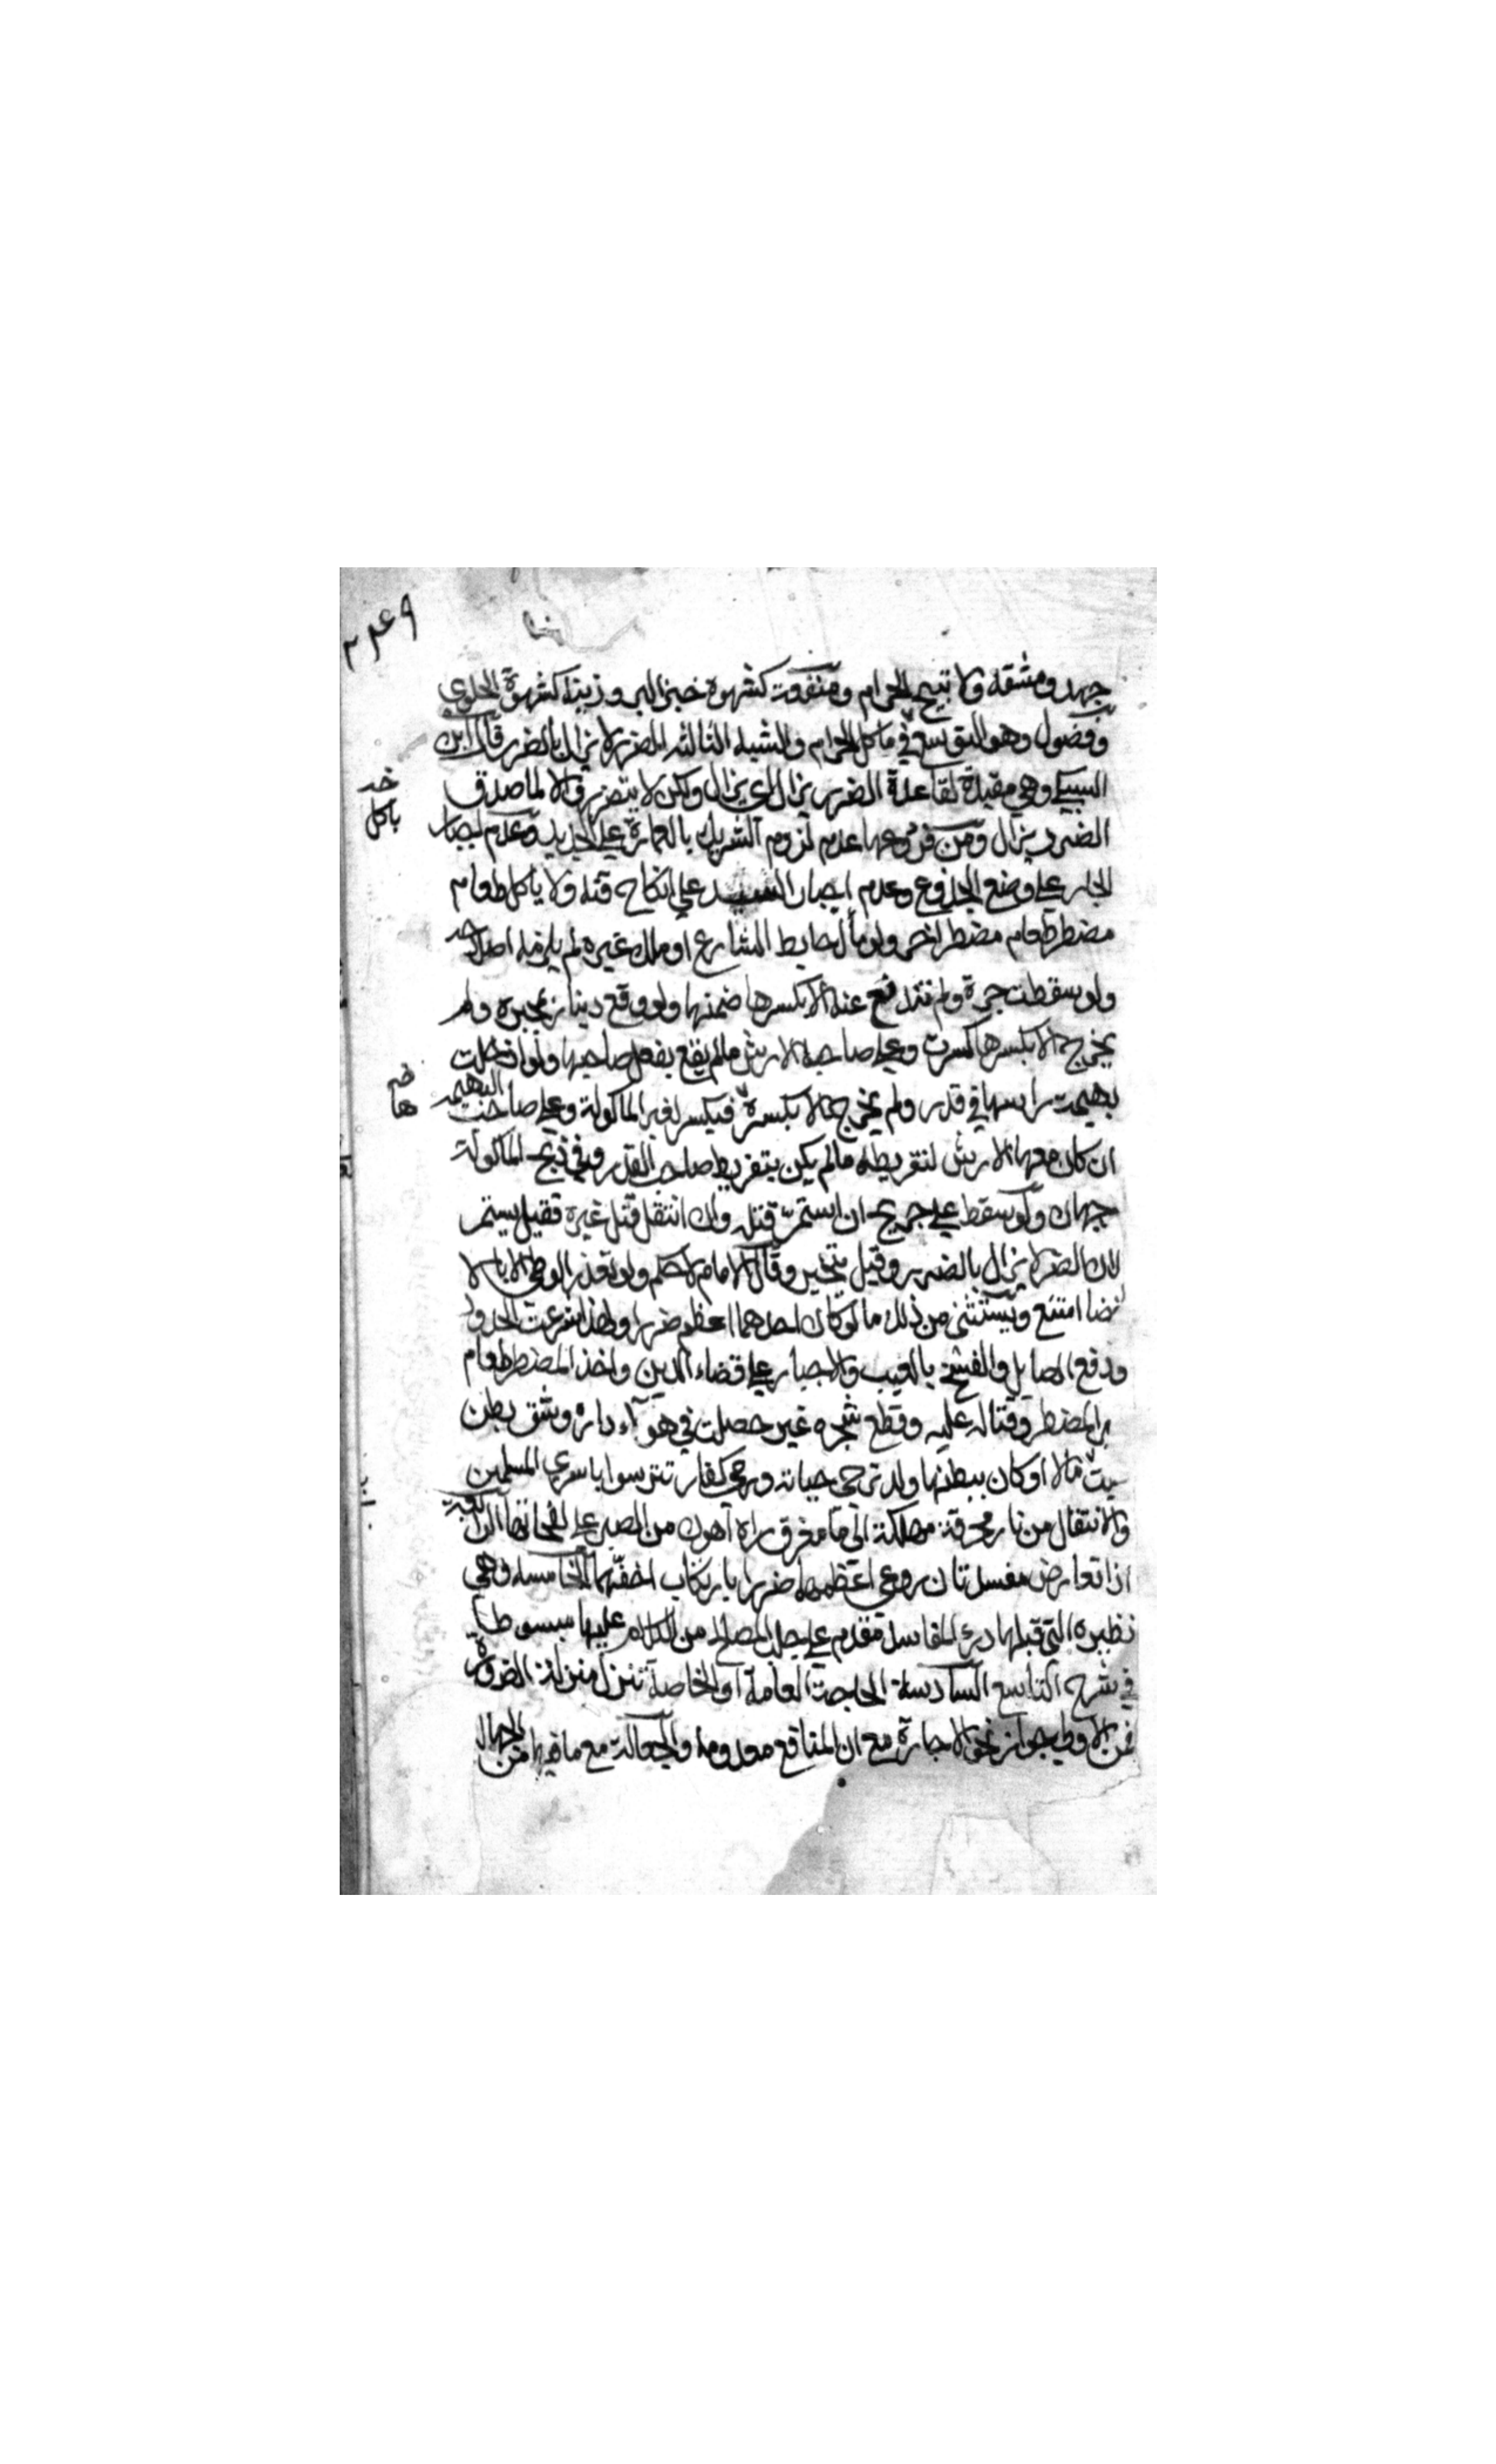 ٢٤٩
جهد ومشقة ولا تبيح الحرام ومنفعة كشهوة خبز البر وزينة كشهوة الحلوى
وفضول وهو التوسع في ماكل الحرام والشبه الثالثة الضرر لا يزال بالضرر قال ابن
السبكي وهي مقيدة لقاعدة الضرر يزال اي يزال ولكن لا بضرر والا لما صدق
الضرر يزال ومن فروعها عدم لزوم الشريك بالعمارة على الجديد وعدم اجبار
الجار على وضع الجذوع وعدم اجبار السيد على انكاح قنه ولا ياكل طعام
مضطر طعام مضطر اخر ولو مال حايط الشارع او ملك غيره لم يلزمه اصلاحه
ولو سقطت جرة ولم تندفع عنه الا بكسرها ضمنها ولو وقع دينار بمحبرة ولم
يخرج الا بكسرها كسرت وعلى صاحبه الارش مالم يقع بفعل صاحبها ولو ادخلت
بهيمة راسها في قدر ولم يخرج الا بكسره فيكسر لغير الماكولة وعلى صاحب البهيمة
ان كان معها الارش لتفريطه مالم يكن بتفريط صاحب القدر وفي ذبح الماكولة
وجهان ولو سقط على جريح ان استمر قتله وان انتقل قتل غيره فقيل يستمر
لان الضرر لا يزال بالضرر وقيل يتخير وقال الامام لا حكم ولو تعذر الوطي الا بالا
فضا امتنع ويستثنى من ذلك ما لو كان احدهما اعظم ضررا ولهذا شرعت الحدود
ودفع الصايل والفسخ بالعيب والاجبار على قضاء الدين واخذ المضطر طعام
غير المضطر وقتاله عليه وقطع شجرة غير حصلت في هواء داره وشق بطن
ميت مالا او كان ببطنها ولد ترجى حياته ورمي كفار تترسوا باسرى المسلمين
والانتقال من نار محرقة مهلكة الى ما مغرق راه اهون من الصبر على لفحاتها الرابعة
اذا تعارض مفسدتان روعي اعظمهما ضررا بارتكاب اخفهما الخامسة وهي
نظيرة التي قبلها درء المفاسد مقدم على جلب المصالح من الكلام عليها مبسوطا
في شرح التاسع السادسة الحاجة العامة او الخاصة تنزل منزلة الضرورة
فمن الاولى جواز نحو الاجارة مع ان المنافع معدومة والجعالة مع ما فيها من الجهالة